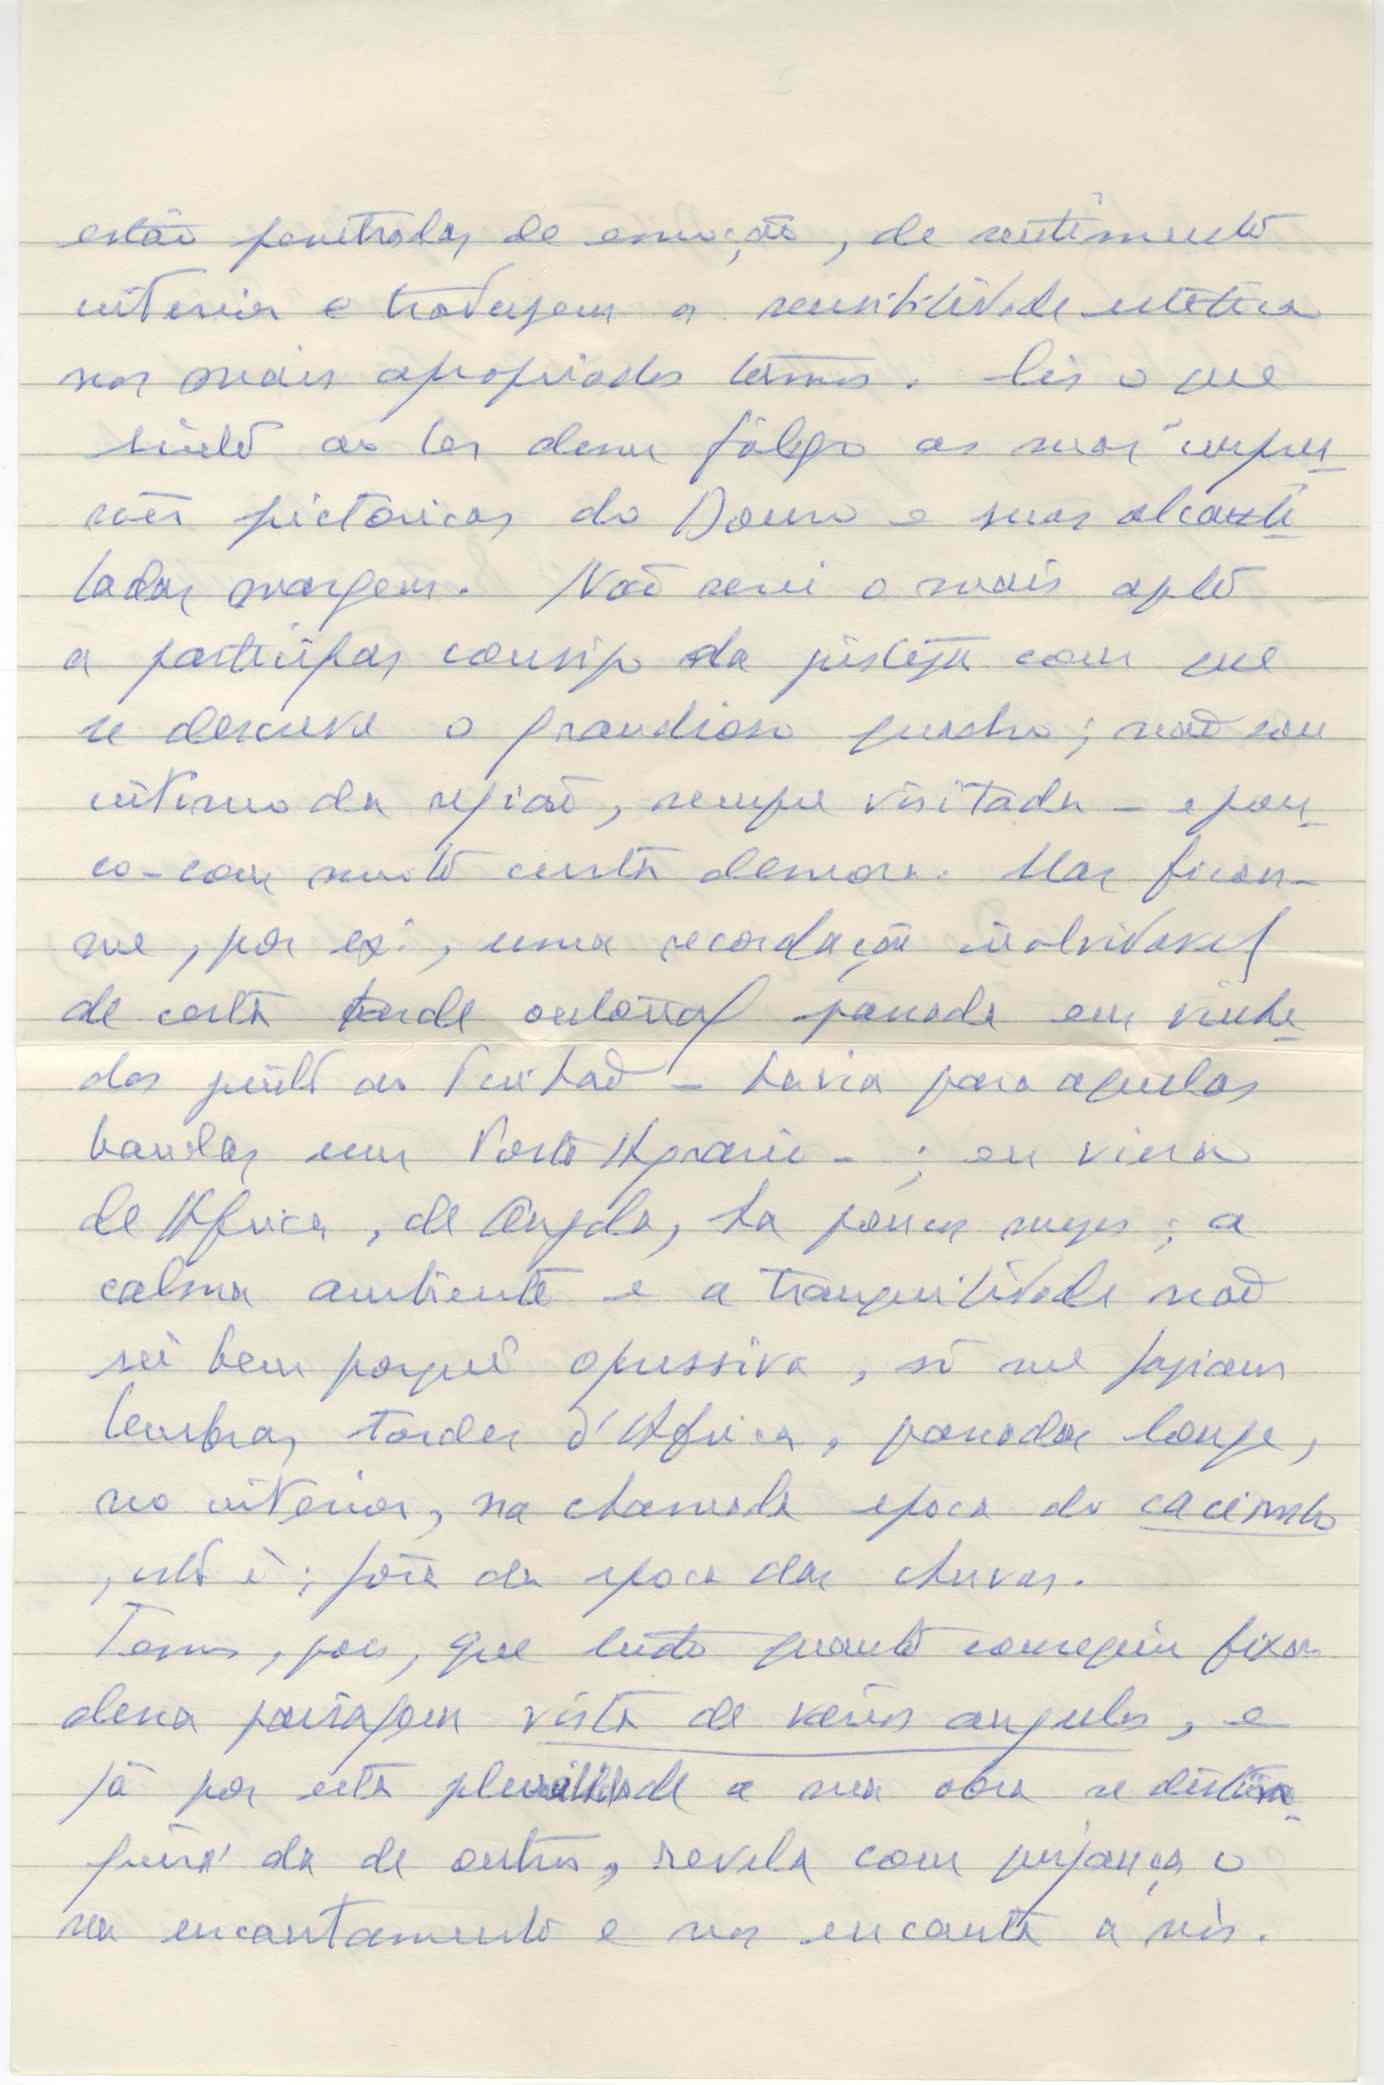 estão penetradas de emoção, de sentimento
interior e traduzem a sensibilidade estética
nos mais apropriados termos. Eis o que
sinto ao ler dum fôlego as suas impres
sões pictóricas do Douro e suas alcanti
ladas margens. Não serei o mais apto
a participar consigo da justeza com que
se descreve o grandioso quadro; não sou
intimo da região, sempre visitada - e pou
co - com muito curta demora. Mas ficou-
me, por ex:, uma recordação inolvidavel
de certa tarde outonal passada em vinhe
dos junto ao Pinhão - havia para aquelas
bandas um Posto Agrario - ; eu viera
de Africa, de Angola, ha poucos meses; a
calma ambiente e a tranquilidade não
sei bem porquê opressiva, só me faziam
lembrar tardes d'Africa, passadas longe,
no interior, na chamada epoca do cacimbo
, isto é; fora da epoca das chuvas.
Temos, pois, que tudo quanto conseguiu fixar
dessa paisagem vista de vários angulos, e
já por esta pluralidade a sua obra se distin
guirá da de outros, revela com pujança o
seu encantamento e nos encanta a nós.